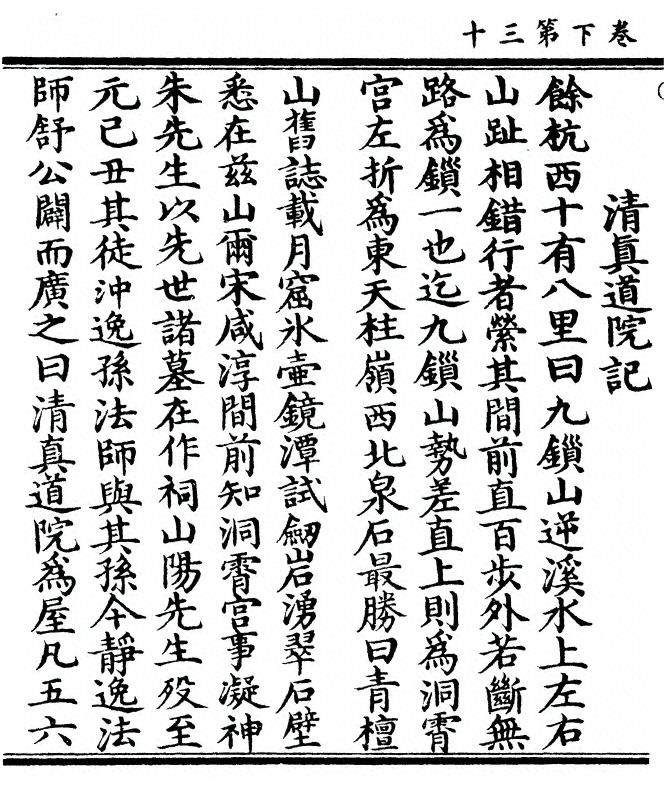 卷下第三十
清眞道院記
餘杭西十有八里曰九鎖山逆溪水上左右
山趾相錯行者縈其間前直百步外若斷無
路爲鎖一也迄九鎖山勢差直上則爲洞霄
宮左折爲東天柱嶺西北泉石最勝曰青檀
山舊誌載月窟氷壷鏡潭試劒岩湧翠石壁
悉在茲山爾宋咸淳間前知洞霄宮事凝神
朱先生以先世諸墓在作祠山陽先生歿至
元己丑其徒沖逸孫法師與其孫今靜逸法
師舒公闢而廣之曰清真道院爲屋凡五六